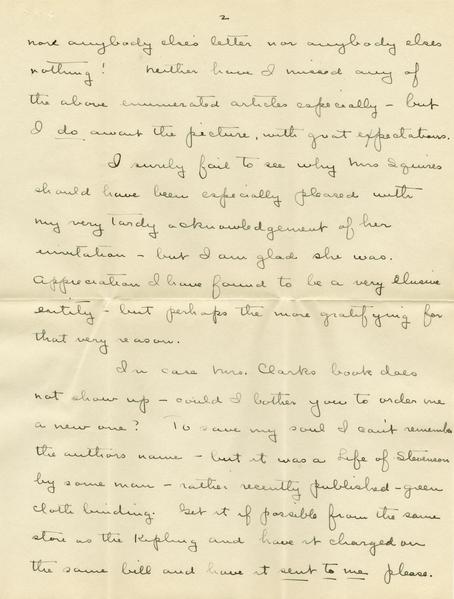 2
nor anybody else's letter nor anybody elses
nothing! Neither have I missed any of
the above enumerated articles especially - but
I do await the picture, with great expectations.
I surely fail to see why Mrs Squires
should have been especially pleased with
my very Tardy acknowledgement of her
invitation - but I am glad she was.
Appreciation I have found to be a very elusive
entity - but perhaps the more gratifying for
that very reason.
In case Mrs. Clarks book does
not show up - could I bother you to order me
a new one? To save my soul I can't remember
the authors name - but it was a Life of Stevenson
by some man - rather recently published - green
cloth binding. Get it if possible from the same
store as the Kipling and have it charged on
the same bill and have it sent to me please.